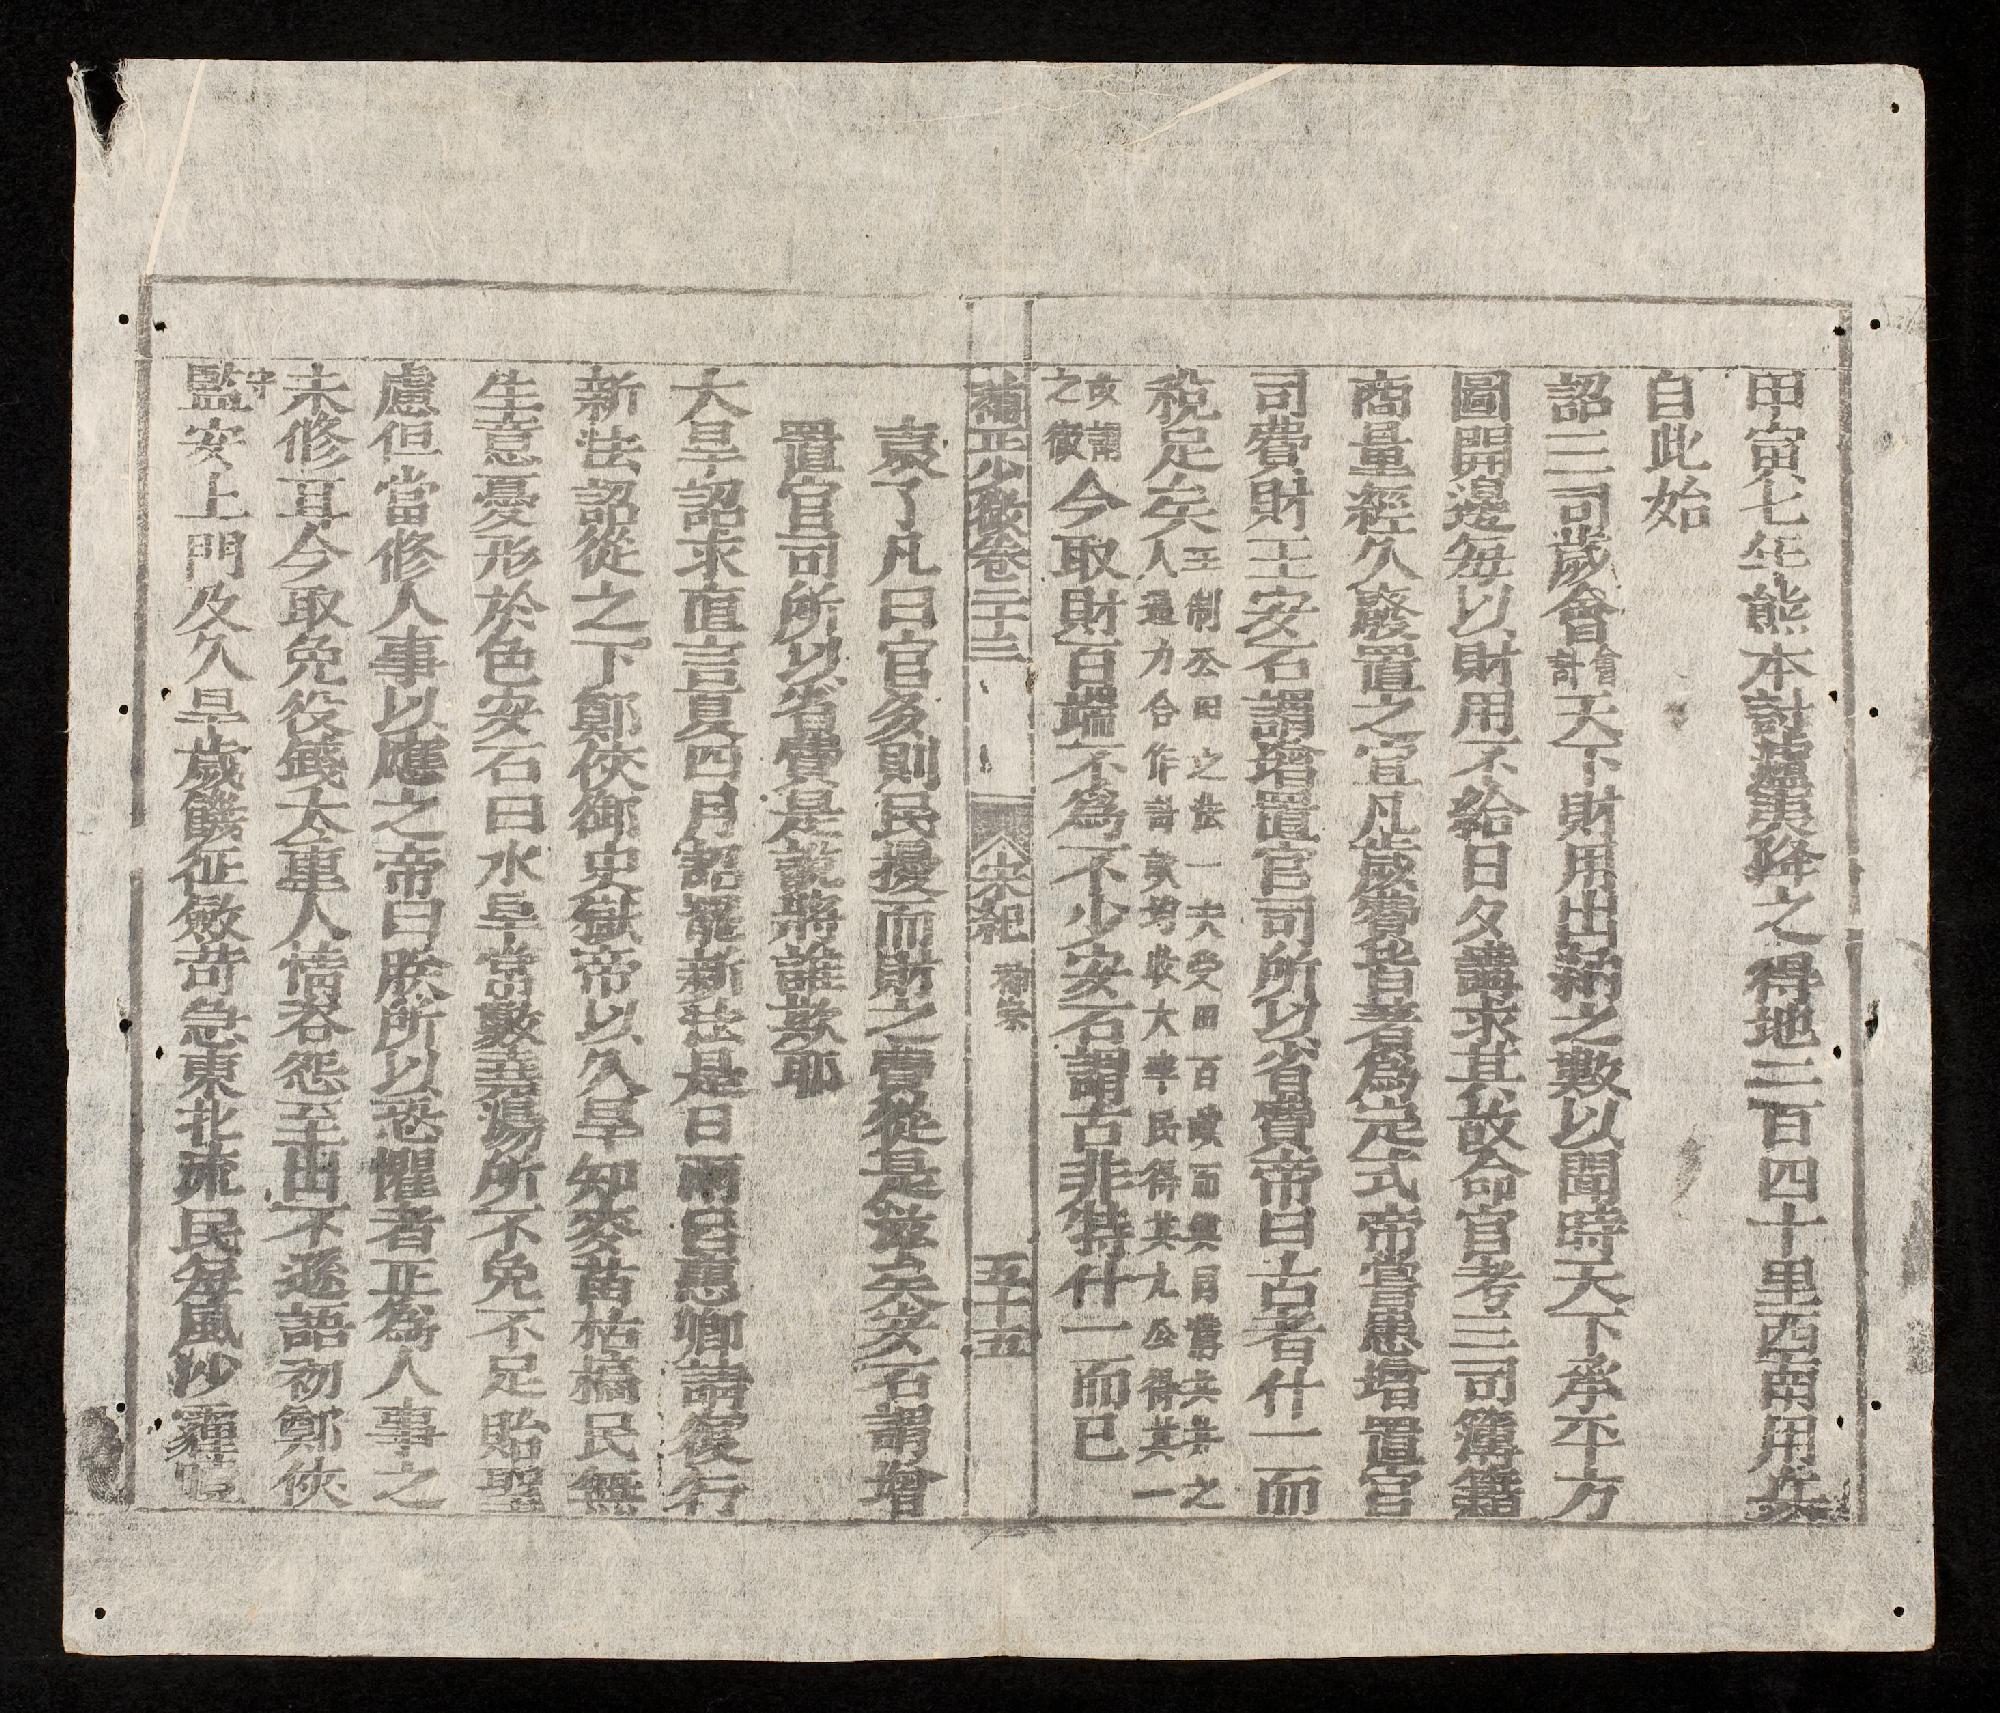 甲寅七年熊本討瀘夷降之得地二百四十里西南用兵
自此始
詔三司歲會會計天下財用出納之數以聞時天下承平方
圖開邊每以財用不給日夕講求其故命官考三司簿籍
商量經久廢置之宜凡歲費皆著為定式帝嘗患增置官
司費財王安石謂增置官司所以省費帝曰古者什一而
稅足矣王制公田之法一夫受田百畝而與同井之
人通力合作計畝均收大率民得其九公得其一
之徹今取財百端不為不少安石謂古非特什一而已
補正少微卷二十三
宋紀 神宗
五十五
袁了凡曰官多則民擾而財之費從是滋矣安石謂增
置官司所以省費是說將誰欺耶
大旱詔求直言夏四月詔罷新法是日雨呂惠卿請復行
新法詔從之下鄭俠御史獄帝以久旱知麥苗枯槁民無
生意憂形於色安石曰水旱常數堯湯所不免不足貽聖
慮但當修人事以應之帝曰朕所以恐懼者正為人事之
未修耳今取免役錢太重人情咨怨至出不遜語初鄭俠
監守安上門及久旱歲饑征斂苛急東北流民每風沙霾曀